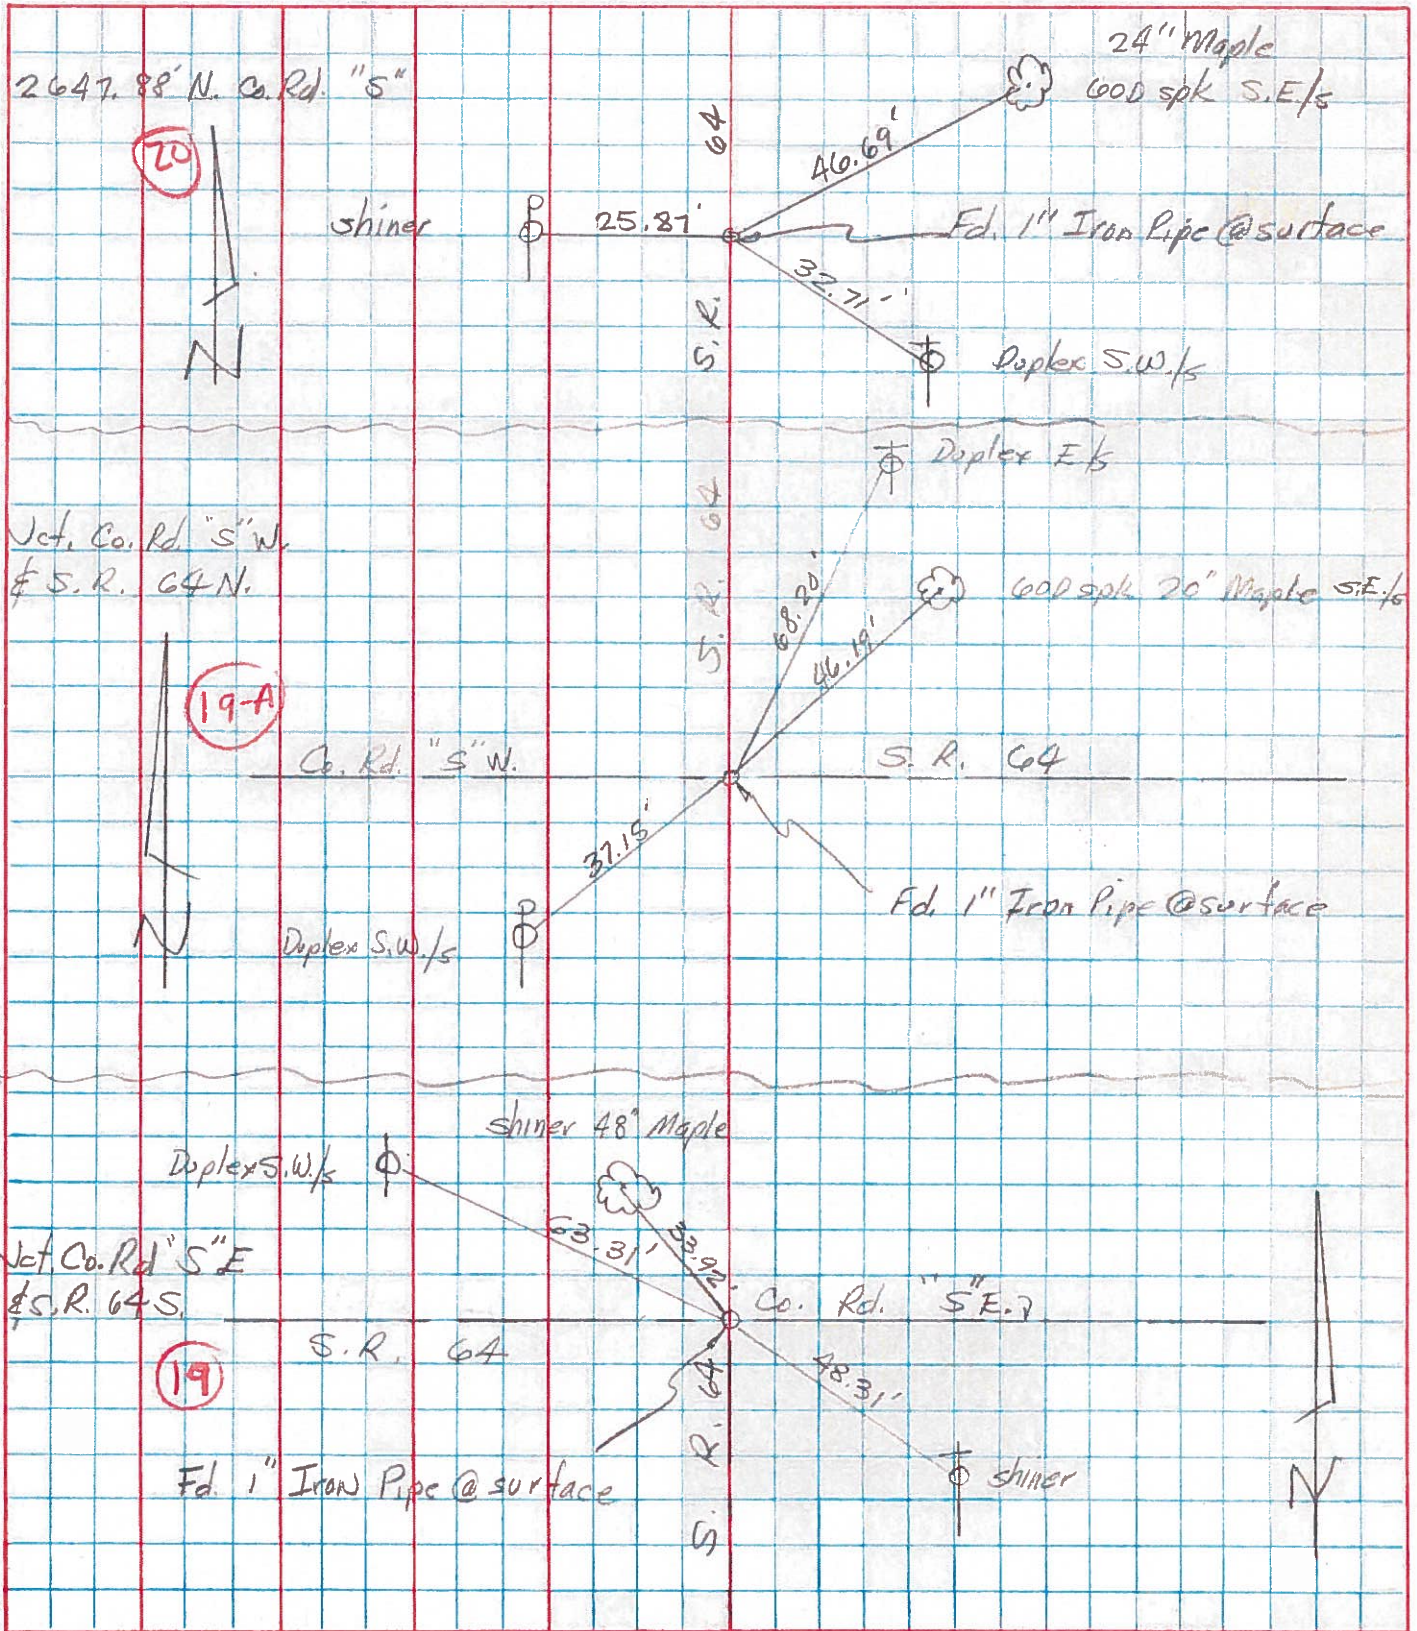 24" Maple
2647.88' N. Co. Rd. "S"
60D spk S.E./s
20
46.69'
S. R. 64
shiner
25.87'
Fd. 1" Iron Pipe @ surface
32.71'
N
Duplex S.W./s
Duplex E/s
Jct. Co. Rd. "S" W.
& S.R. 64 N.
S. R. 64
60D spk 20" Maple S.E./s
68.20'
46.19'
19-A
Co. Rd. "S" W.
S. R. 64
37.15'
Fd. 1" Iron Pipe @ surface
N
Duplex S.W./s
shiner 48" Maple
Duplex S.W./s
63.31'
33.92'
Jct. Co. Rd "S" E
& S.R. 64 S.
Co. Rd. "S" E.
S.R. 64
19
48.31'
S. R. 64
Fd. 1" Iron Pipe @ surface
shiner
N